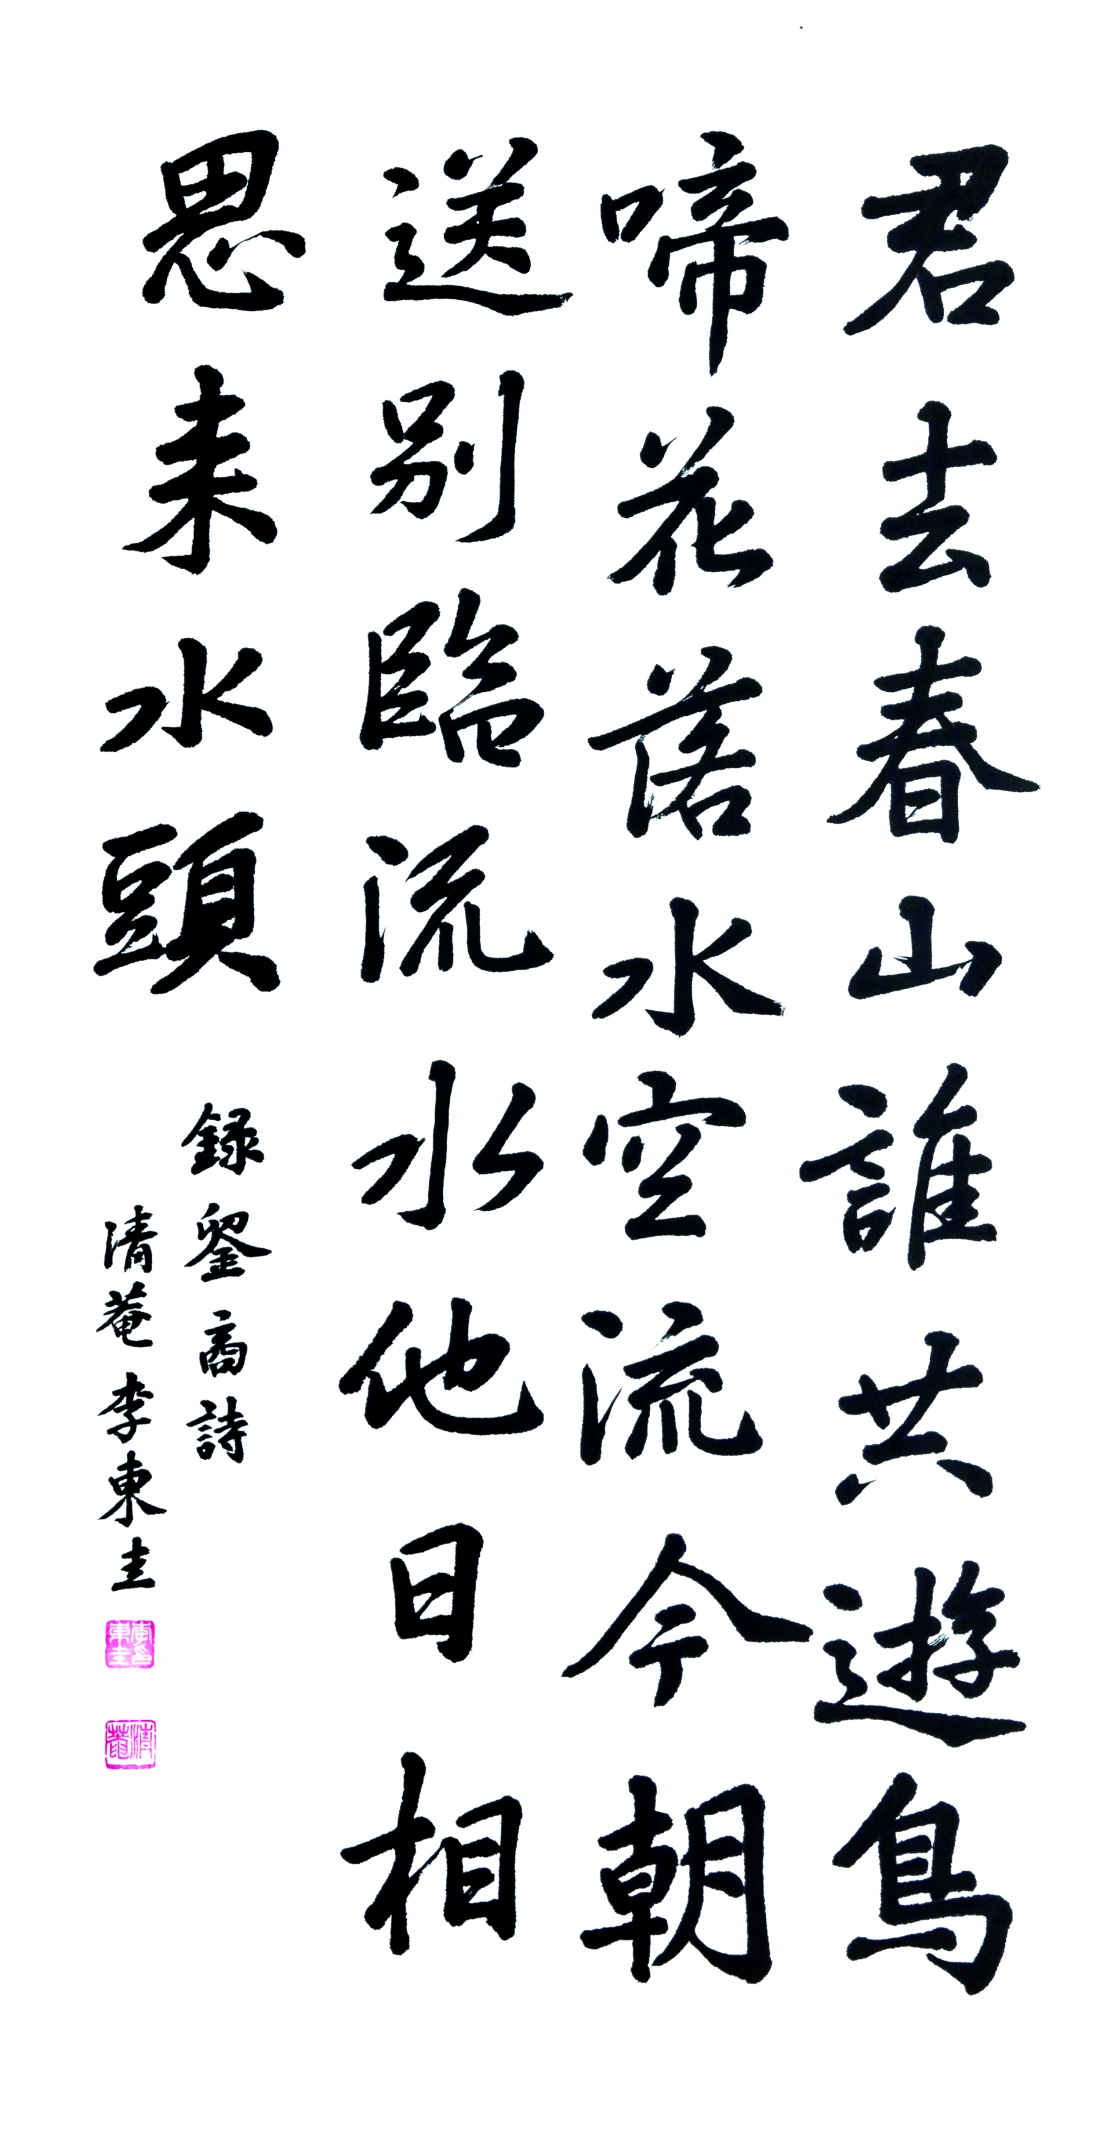 君去春山誰共遊鳥
啼花落水空流今朝
送别臨流水他日相
思来水頭
録劉商詩
清菴李東圭